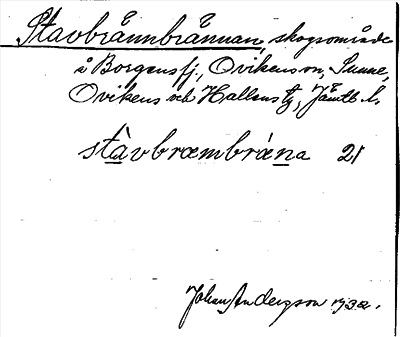 Stavbrännbrännan, skogsområde
å Borgens fj., Ovikens sn, Sunne,
Ovikens och Hallens tg, Jämtl. l.
stàvbræmbræ̀na 21
Johan Anderzson 1932.